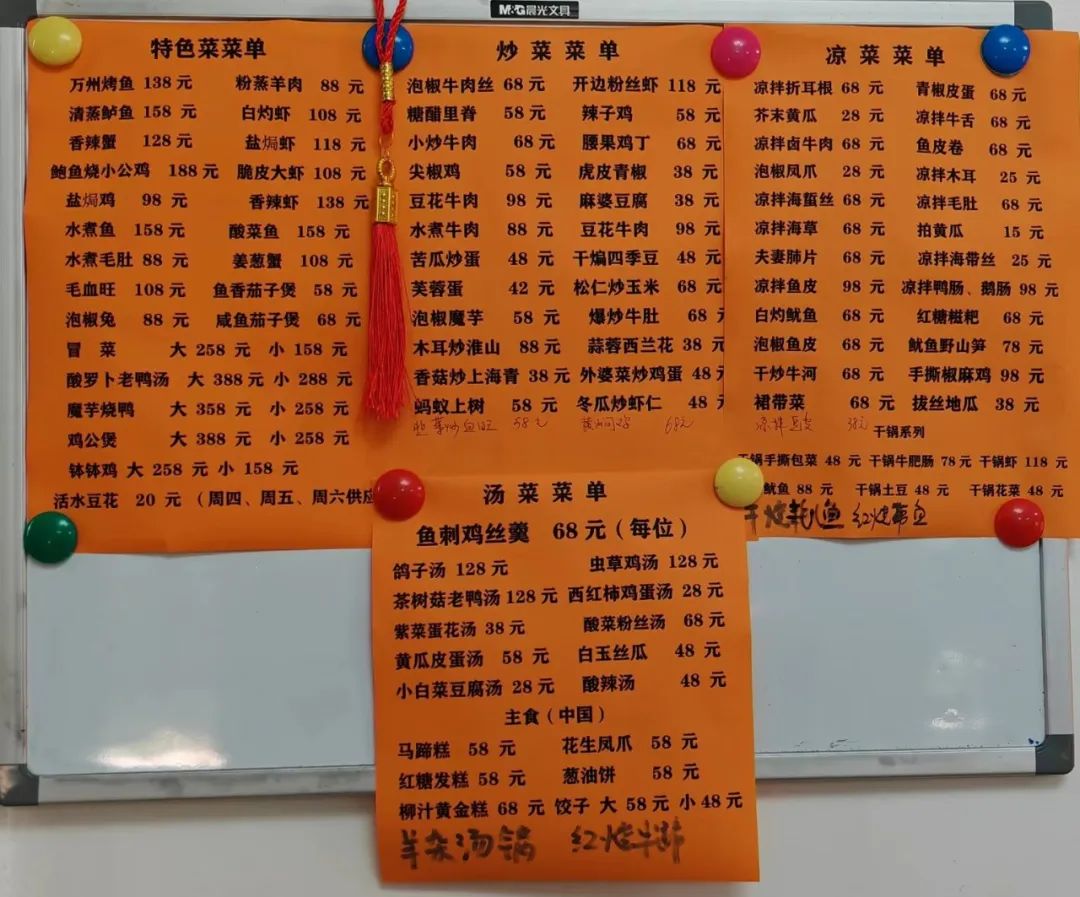 M&G晨光文具
特色菜菜单
万州烤鱼 138元 粉蒸羊肉 88 元
清蒸鲈鱼 158 元 白灼虾 108 元
香辣蟹 128 元 盐焗虾 118 元
鲍鱼烧小公鸡 188元 脆皮大虾 108 元
盐焗鸡 98 元 香辣虾 138 元
水煮鱼 158 元 酸菜鱼 158 元
水煮毛肚 88 元 姜葱蟹 108 元
毛血旺 108元 鱼香茄子煲 58 元
泡椒兔 88 元 咸鱼茄子煲 68 元
冒 菜 大 258 元 小 158 元
酸罗卜老鸭汤 大 388元 小 288 元
魔芋烧鸭 大 358 元 小 258 元
鸡公煲 大 388 元 小 258 元
钵钵鸡 大 258 元 小 158 元
活水豆花 20 元 （周四、周五、周六供应
炒菜菜单
泡椒牛肉丝 68 元 开边粉丝虾 118 元
糖醋里脊 58 元 辣子鸡 58 元
小炒牛肉 68 元 腰果鸡丁 68 元
尖椒鸡 58 元 虎皮青椒 38 元
豆花牛肉 98 元 麻婆豆腐 38 元
水煮牛肉 88 元 豆花牛肉 98 元
苦瓜炒蛋 48 元 干煸四季豆 48 元
芙蓉蛋 42 元 松仁炒玉米 68 元
泡椒魔芋 58 元 爆炒牛肚 68 元
木耳炒淮山 88元 蒜蓉西兰花 38 元
香菇炒上海青 38 元 外婆菜炒鸡蛋 48 元
蚂蚁上树 58 元 冬瓜炒虾仁 48 元
58元 黄焖鸡 68元
凉菜菜单
凉拌折耳根 68 元 青椒皮蛋 68 元
芥末黄瓜 28 元 凉拌牛舌 68 元
凉拌卤牛肉 68 元 鱼皮卷 68 元
泡椒凤爪 28 元 凉拌木耳 25 元
凉拌海蜇丝 68 元 凉拌毛肚 68 元
凉拌海草 68 元 拍黄瓜 15 元
夫妻肺片 68 元 凉拌海带丝 25 元
凉拌鱼皮 98 元 凉拌鸭肠、鹅肠 98 元
白灼鱿鱼 68 元 红糖糍粑 68 元
泡椒鱼皮 68 元 鱿鱼野山笋 78 元
干炒牛河 68 元 手撕椒麻鸡 98 元
裙带菜 68 元 拔丝地瓜 38 元
凉拌 38元 干锅系列
干锅手撕包菜 48 元 干锅牛肥肠 78 元 干锅虾 118 元
鱿鱼 88 元 干锅土豆 48 元 干锅花菜 48 元
干烧 鱼 红烧带鱼
汤菜菜单
鱼刺鸡丝羹 68 元（每位）
鸽子汤 128 元 虫草鸡汤 128 元
茶树菇老鸭汤 128 元 西红柿鸡蛋汤 28 元
紫菜蛋花汤 38 元 酸菜粉丝汤 68 元
黄瓜皮蛋汤 58 元 白玉丝瓜 48 元
小白菜豆腐汤 28 元 酸辣汤 48 元
主食（中国）
马蹄糕 58 元 花生凤爪 58 元
红糖发糕 58 元 葱油饼 58 元
柳汁黄金糕 68 元 饺子 大 58 元 小 48 元
羊杂汤锅 红烧牛蹄